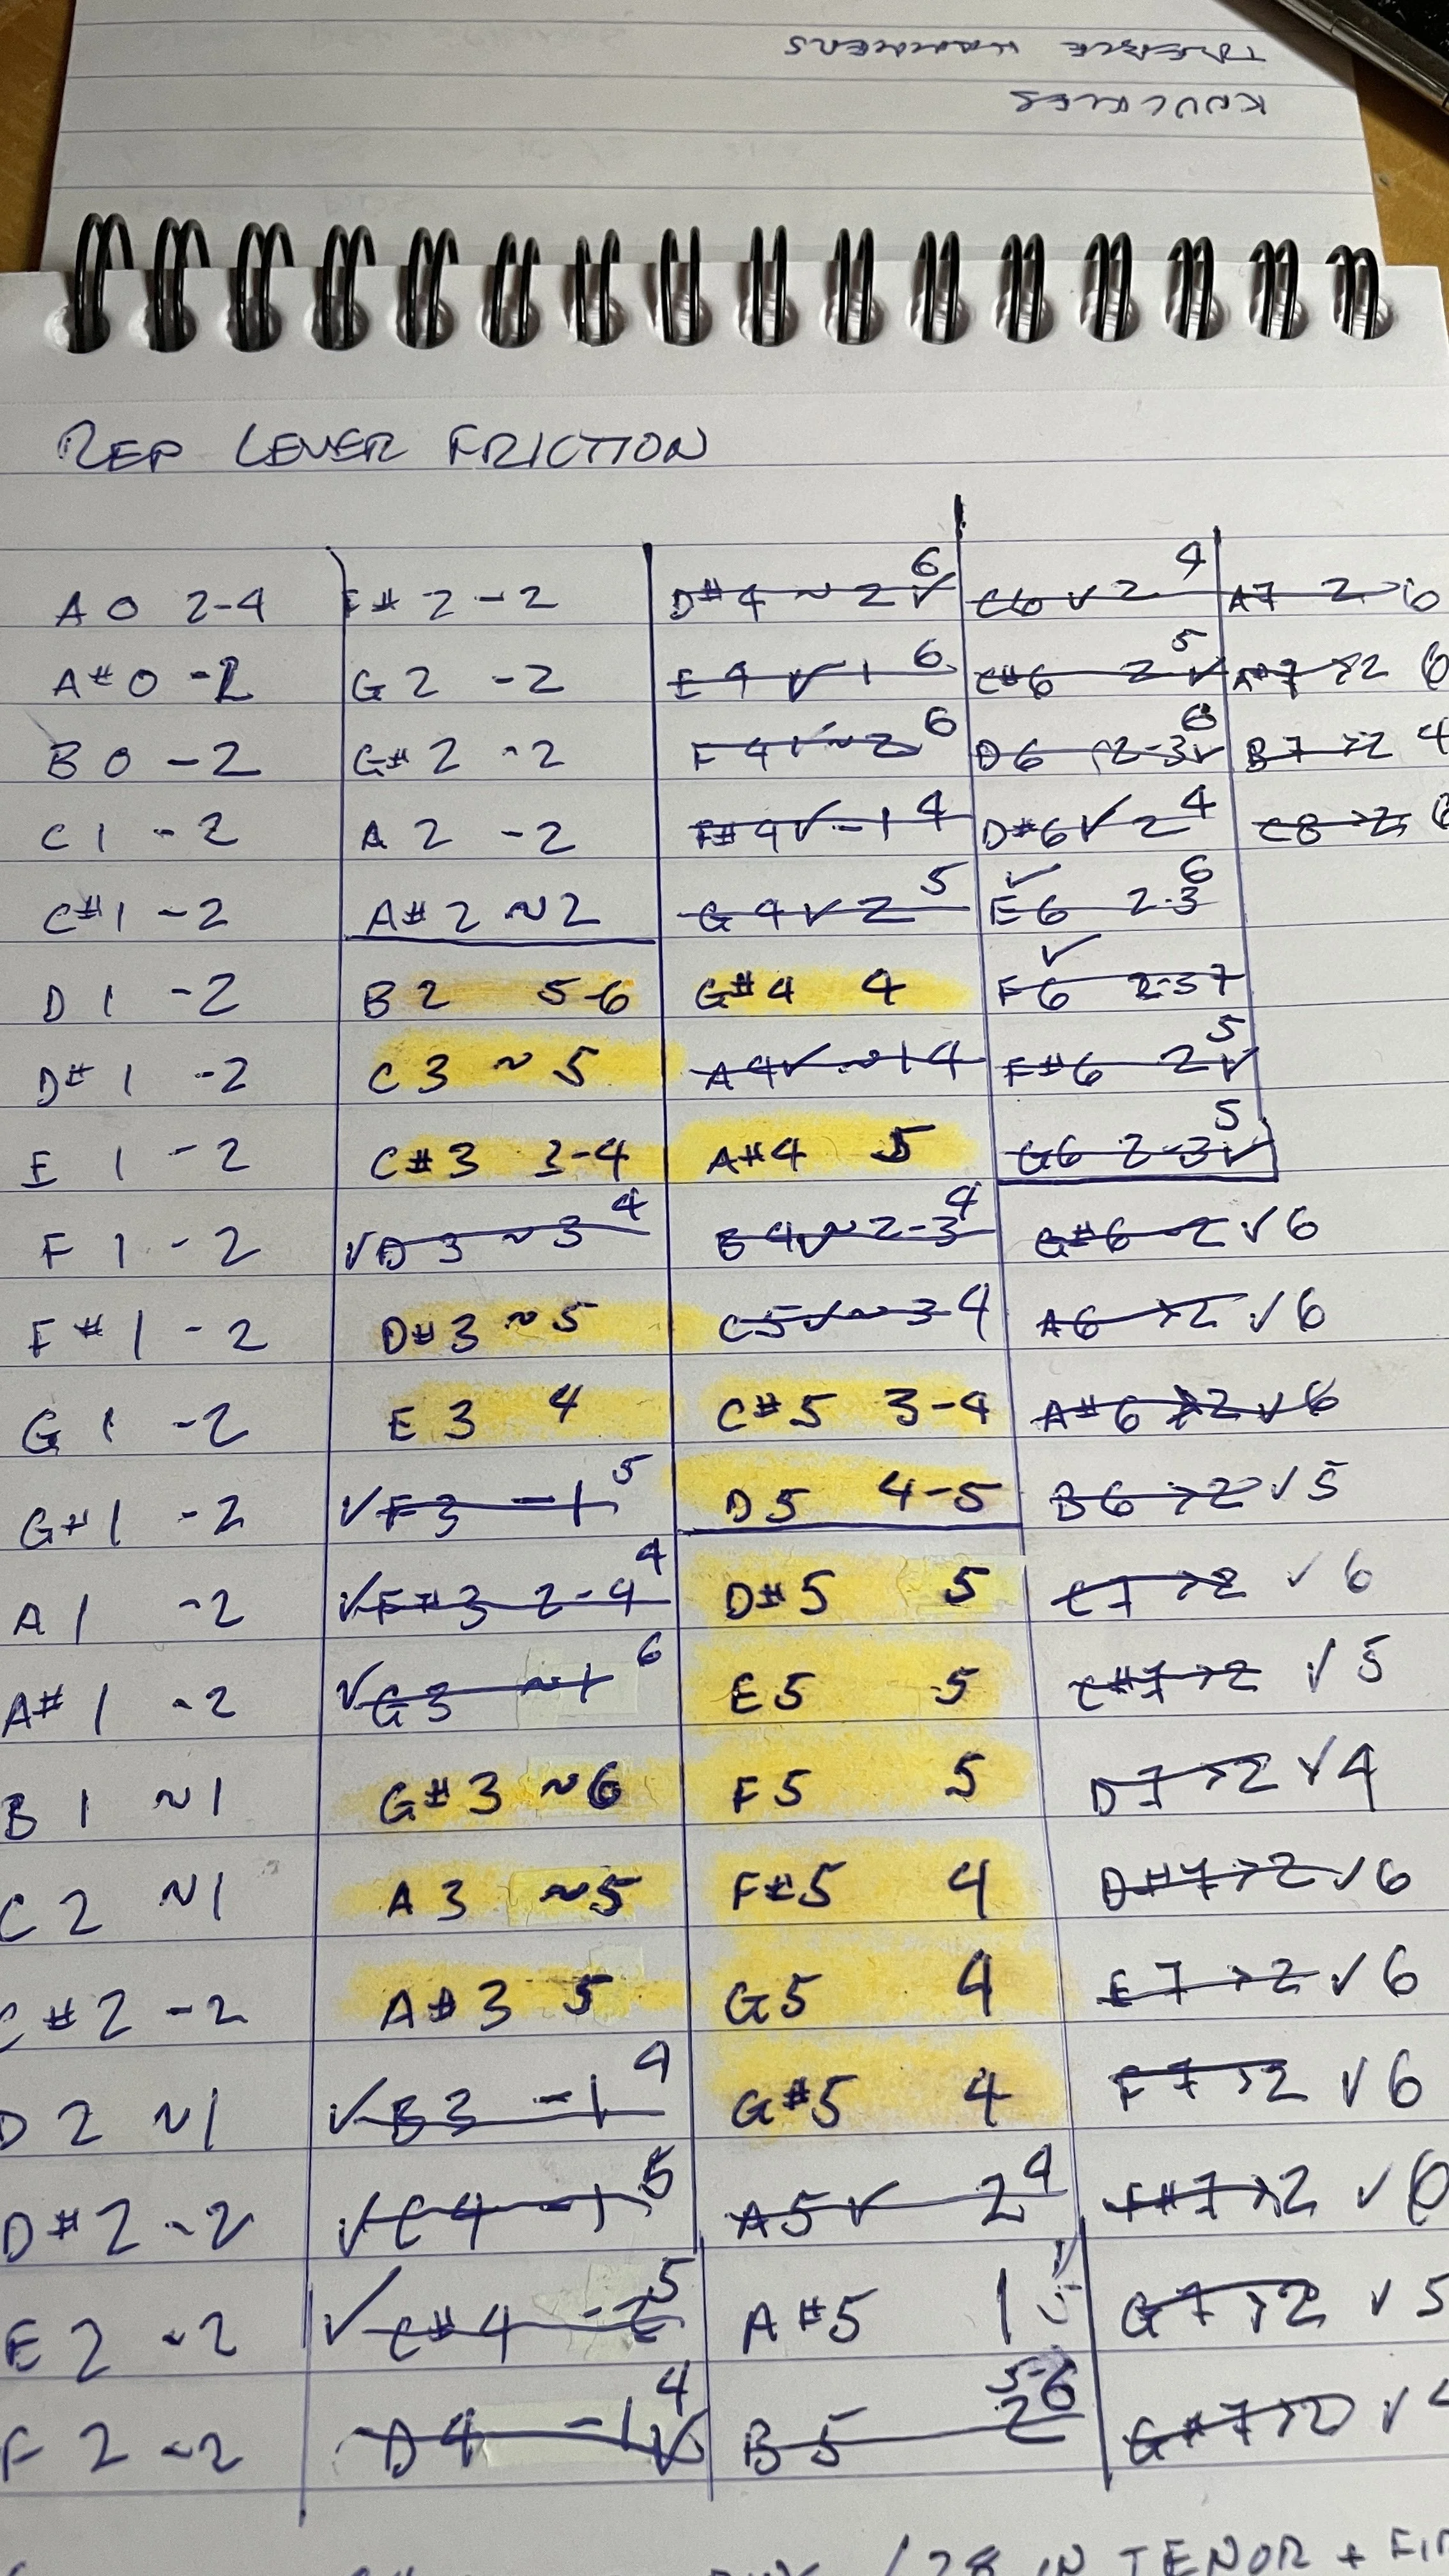 TREBLE HAMMERS
KNUCKLES
REP LEVER FRICTION
A 0 2-4
A# 0 -2
B 0 -2
C 1 -2
C# 1 -2
D 1 -2
D# 1 -2
E 1 -2
F 1 -2
F# 1 -2
G 1 -2
G# 1 -2
A 1 -2
A# 1 -2
B 1 ~1
C 2 ~1
C# 2 -2
D 2 ~1
D# 2 -2
E 2 -2
F 2 -2
F# 2 -2
G 2 -2
G# 2 -2
A 2 -2
A# 2 ~2
B 2 5-6
C 3 ~5
C# 3 3-4
✓ D 3 ~3 4
D# 3 ~5
E 3 4
✓ F 3 -1 5
✓ F# 3 2-4 4
✓ G 3 ~1 6
G# 3 ~6
A 3 ~5
A# 3 5
✓ B 3 -1 4
✓ C 4 -1 5
✓ C# 4 -2 5
D 4 -1 ✓ 4
D# 4 ~2 ✓ 6
E 4 ✓ -1 6
F 4 ✓ ~2 6
F# 4 ✓ -1 4
G 4 ✓ 2 5
G# 4 4
A 4 ✓ ~1 4
A# 4 5
B 4 ✓ ~2-3 4
C 5 ✓ ~3 4
C# 5 3-4
D 5 4-5
D# 5 5
E 5 5
F 5 5
F# 5 4
G 5 4
G# 5 4
A 5 ✓ 2 4
A# 5 1 ✓ 5
B 5 2 5-6
C 6 ✓ 2 4
C# 6 2 ✓ 5
D 6 2-3 ✓ 6
D# 6 ✓ 2 4
✓ E 6 2-3 6
✓ F 6 2-3 7
F# 6 2 ✓ 5
G 6 2-3 ✓ 5
G# 6 ~2 ✓ 6
A 6 >2 ✓ 6
A# 6 >2 ✓ 6
B 6 >2 ✓ 5
C 7 >2 ✓ 6
C# 7 >2 ✓ 5
D 7 >2 ✓ 4
D# 7 >2 ✓ 6
E 7 >2 ✓ 6
F 7 >2 ✓ 6
F# 7 >2 ✓ 6
G 7 >2 ✓ 5
G# 7 >2 ✓
A 7 2 6
A# 7 >2 6
B 7 >2 4
C 8 >2 6
IN TENOR +